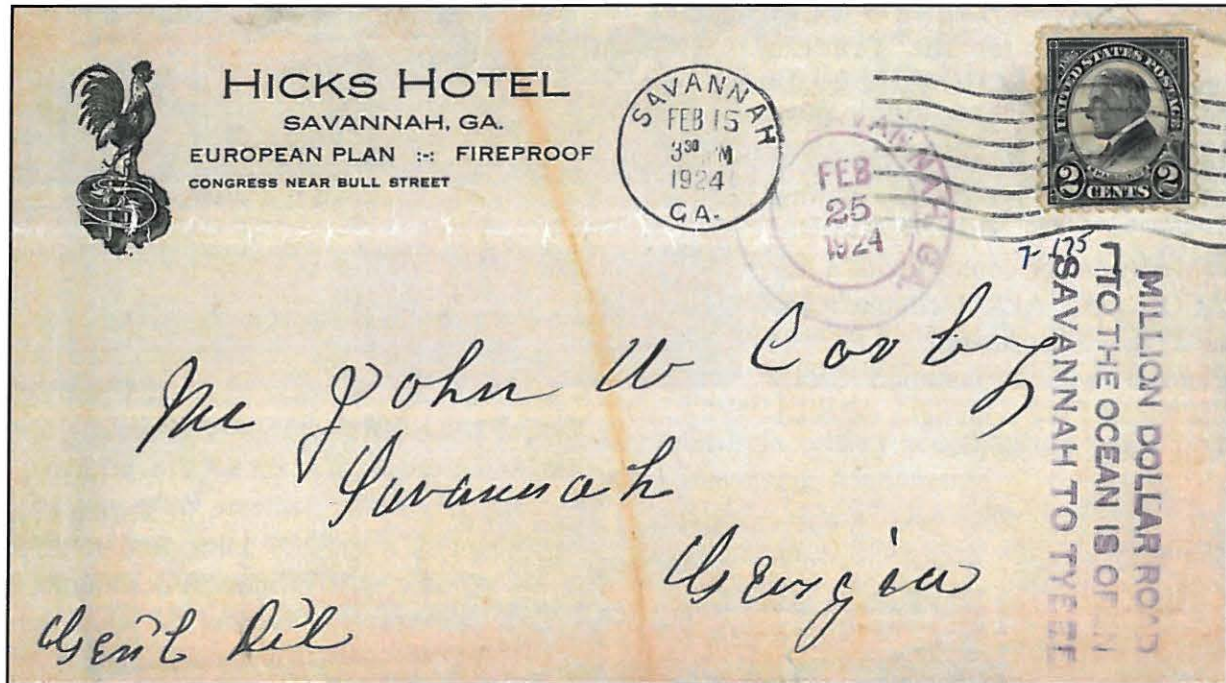 HICKS HOTEL
SAVANNAH, GA.
EUROPEAN PLAN :-: FIREPROOF
CONGRESS NEAR BULL STREET
SAVANNAH
FEB 15
3 30 M
1924
GA.
VANNAH, GA.
FEB
25
1924
UNITED STATES POSTAGE
2 CENTS 2
7-175
MILLION DOLLAR ROAD
TO THE OCEAN IS OPEN
SAVANNAH TO TYBEE
Mr John W
Savannah
Georgia
Gen'l Del